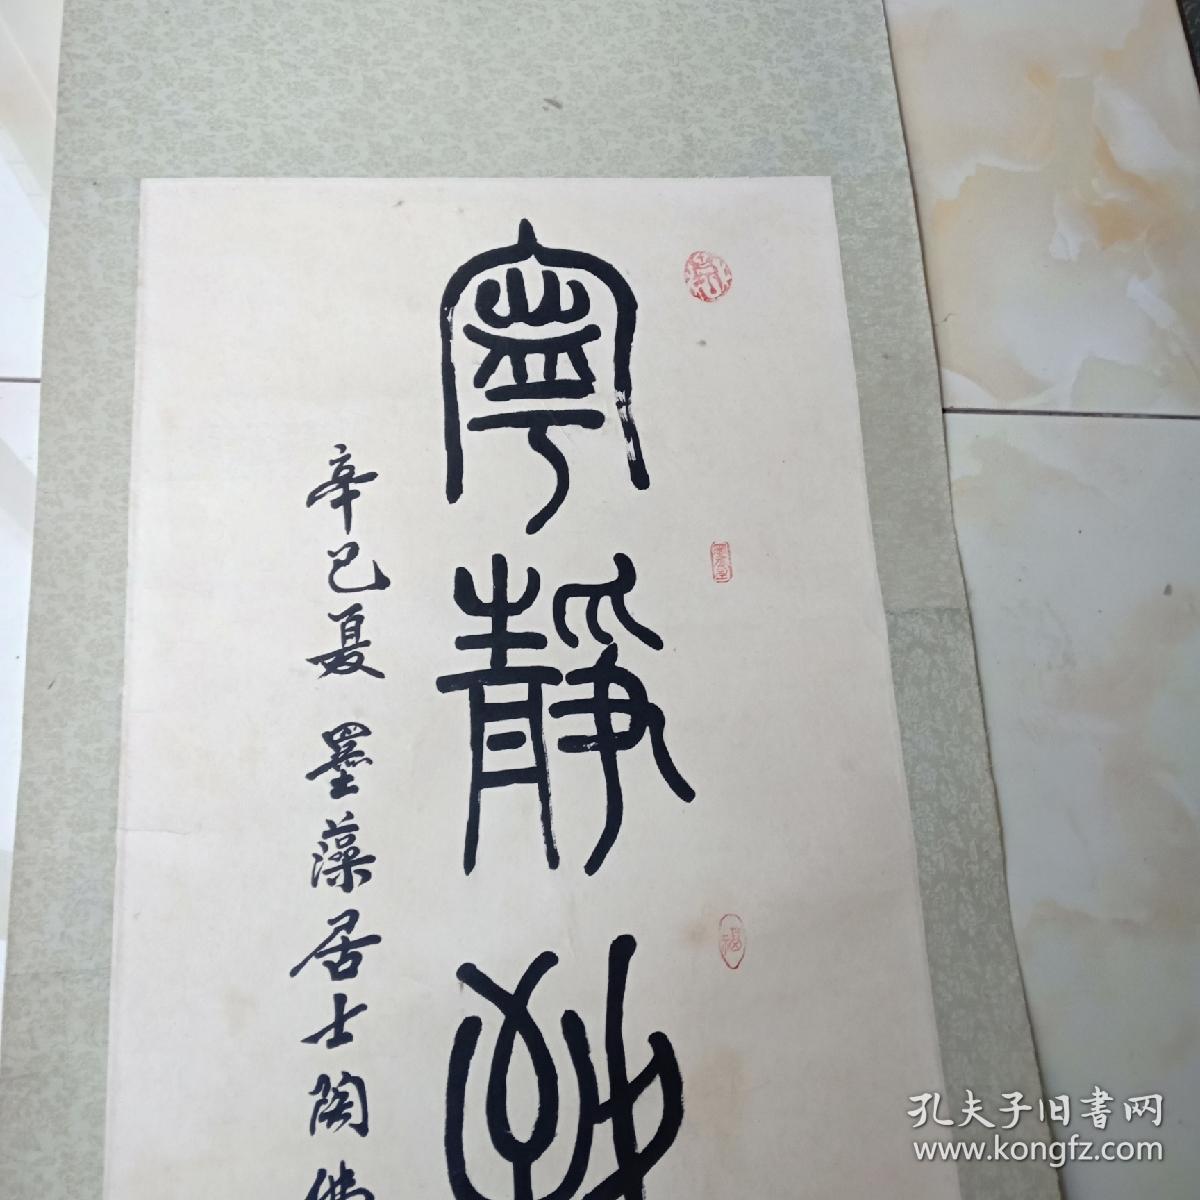 寧靜
辛巳夏 墨藻居士陶
孔夫子旧書网
www.kongfz.com